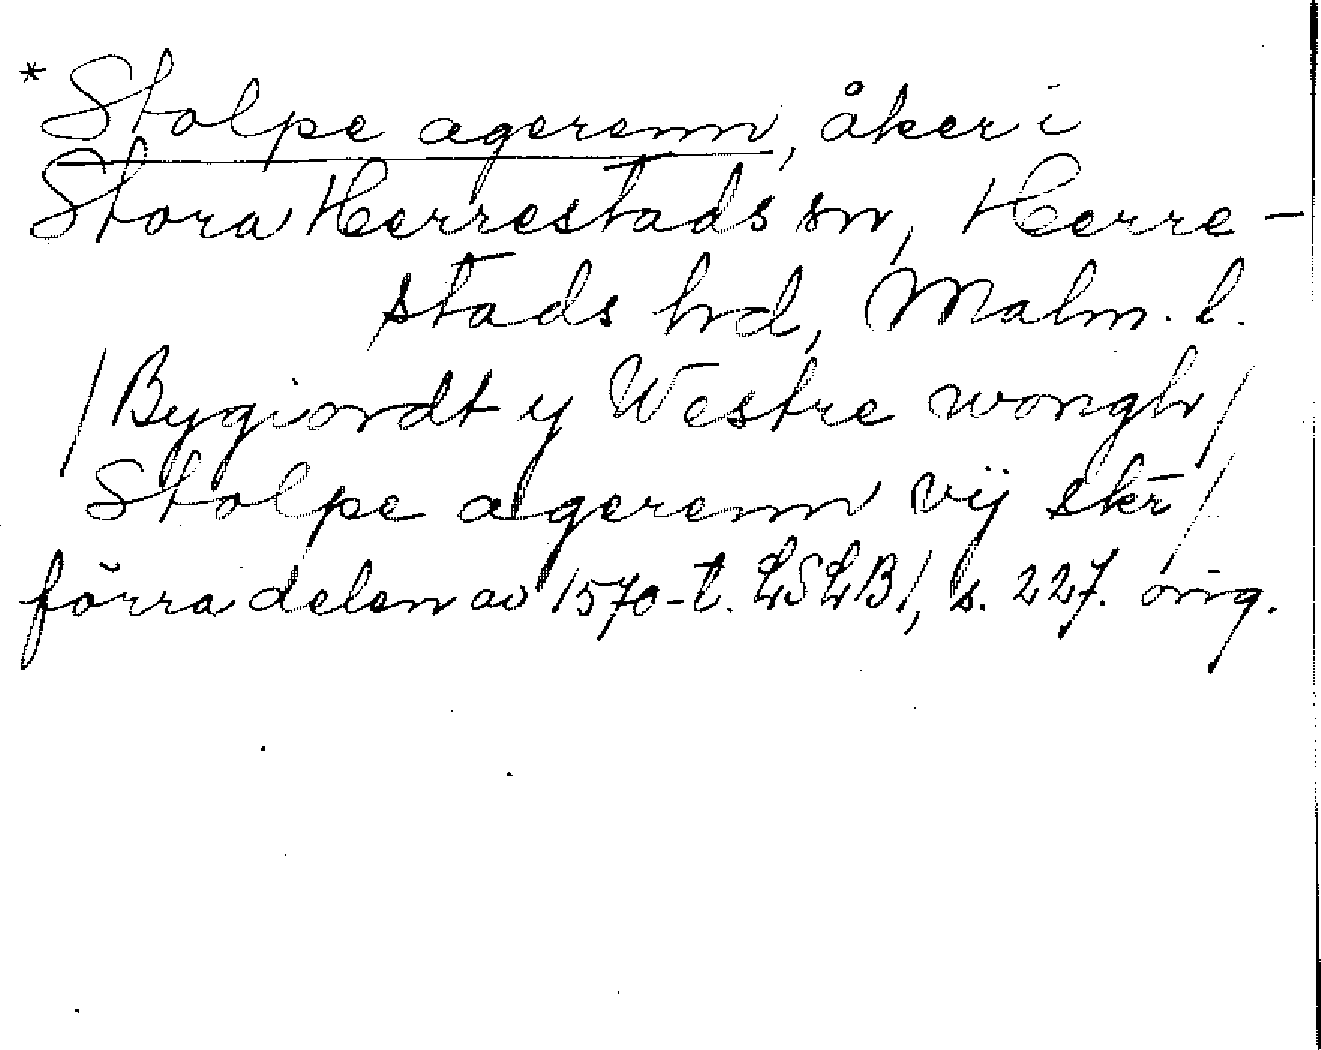 *Stolpe agerenn, åker i
Stora Herrestads sn, Herre-
stads hd, Malm. l.
/Bygiordt y Westre wongh/
Stolpe agerenn vij skr̄/
förra delen av 1570-t. LSLB 1, s. 227. orig.